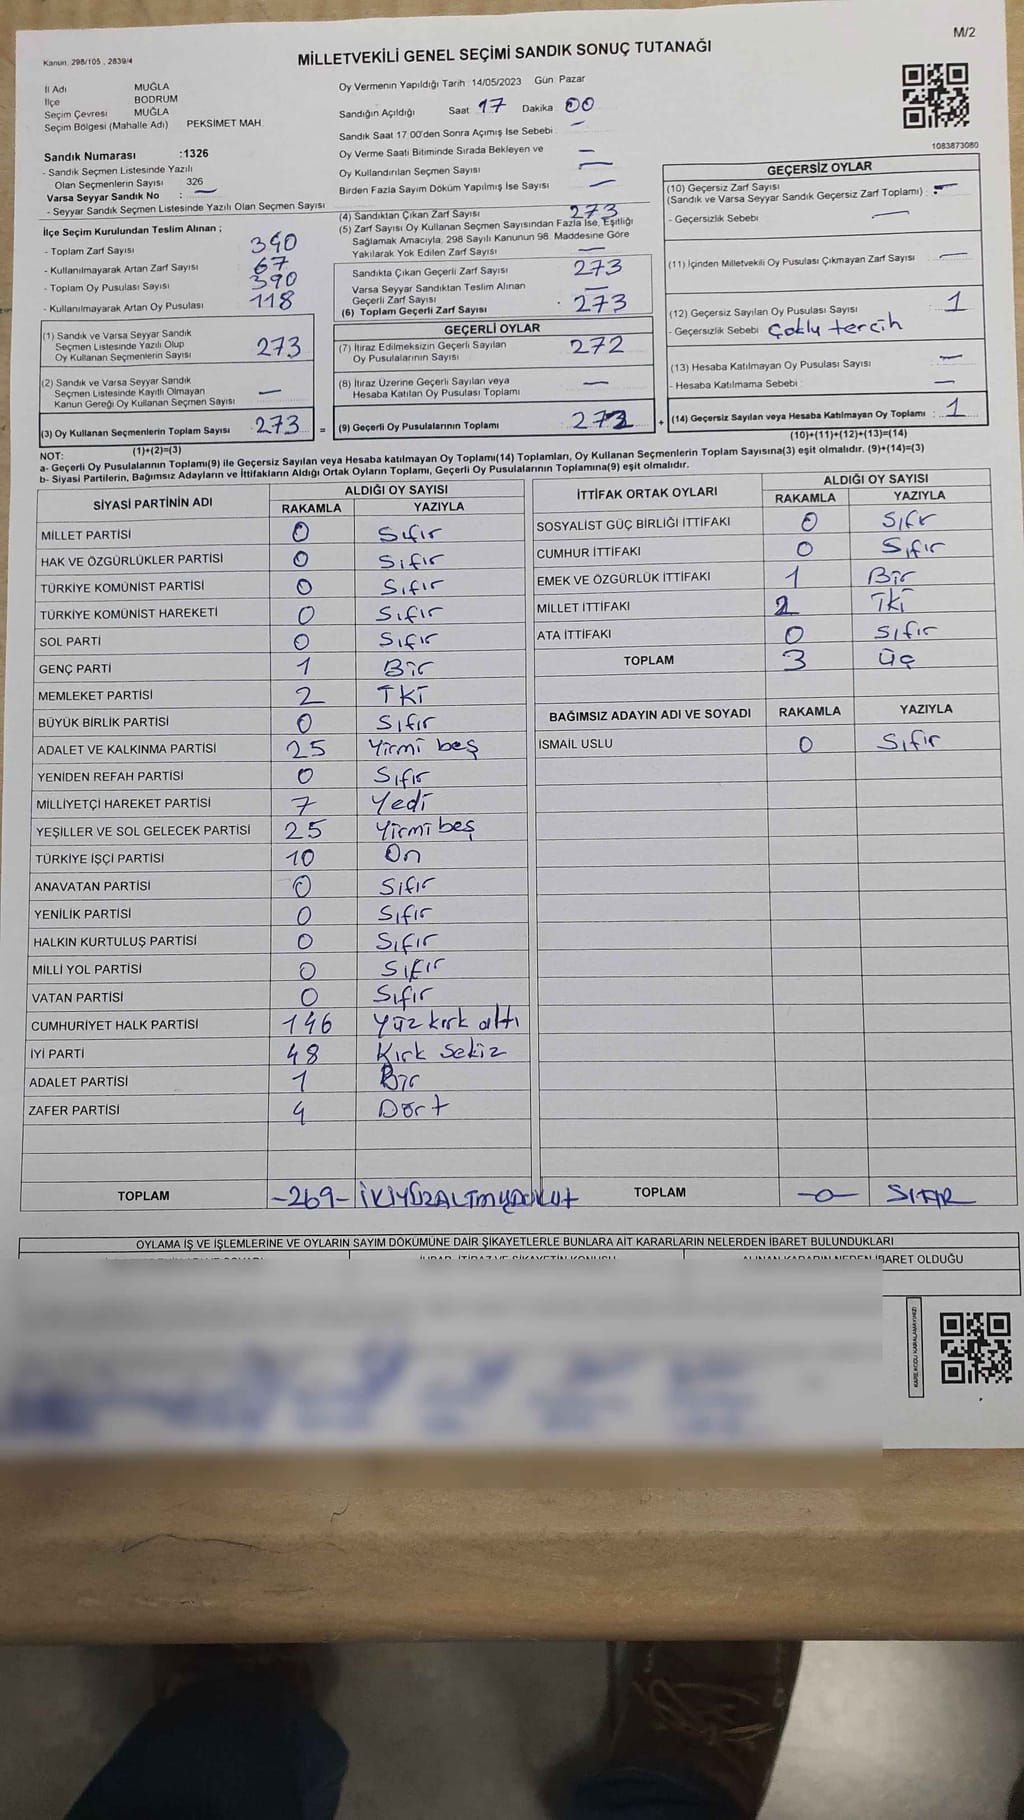 M/2
Kanun: 298/105 , 2839/4
MİLLETVEKİLİ GENEL SEÇİMİ SANDIK SONUÇ TUTANAĞI
İl Adı MUĞLA
İlçe BODRUM
Seçim Çevresi MUĞLA
Seçim Bölgesi (Mahalle Adı) PEKSİMET MAH.
Sandık Numarası :1326
- Sandık Seçmen Listesinde Yazılı
Olan Seçmenlerin Sayısı 326
Varsa Seyyar Sandık No : —
- Seyyar Sandık Seçmen Listesinde Yazılı Olan Seçmen Sayısı
Oy Vermenin Yapıldığı Tarih 14/05/2023 Gün Pazar
Sandığın Açıldığı Saat 17 Dakika 00
Sandık Saat 17 00'den Sonra Açılmış İse Sebebi —
Oy Verme Saati Bitiminde Sırada Bekleyen ve —
Oy Kullandırılan Seçmen Sayısı —
Birden Fazla Sayım Döküm Yapılmış İse Sayısı —
1083873080
İlçe Seçim Kurulundan Teslim Alınan ;
- Toplam Zarf Sayısı 340
- Kullanılmayarak Artan Zarf Sayısı 67
- Toplam Oy Pusulası Sayısı 390
- Kullanılmayarak Artan Oy Pusulası 118
(1) Sandık ve Varsa Seyyar Sandık
Seçmen Listesinde Yazılı Olup
Oy Kullanan Seçmenlerin Sayısı 273
(2) Sandık ve Varsa Seyyar Sandık
Seçmen Listesinde Kayıtlı Olmayan
Kanun Gereği Oy Kullanan Seçmen Sayısı —
(3) Oy Kullanan Seçmenlerin Toplam Sayısı 273 =
(1)+(2)=(3)
(4) Sandıktan Çıkan Zarf Sayısı 273
(5) Zarf Sayısı Oy Kullanan Seçmen Sayısından Fazla İse, Eşitliği
Sağlamak Amacıyla, 298 Sayılı Kanunun 98. Maddesine Göre
Yakılarak Yok Edilen Zarf Sayısı —
Sandıkta Çıkan Geçerli Zarf Sayısı 273
Varsa Seyyar Sandıktan Teslim Alınan
Geçerli Zarf Sayısı —
(6) Toplam Geçerli Zarf Sayısı 273
GEÇERLİ OYLAR
(7) İtiraz Edilmeksizin Geçerli Sayılan
Oy Pusulalarının Sayısı 272
(8) İtiraz Üzerine Geçerli Sayılan veya
Hesaba Katılan Oy Pusulası Toplamı —
(9) Geçerli Oy Pusulalarının Toplamı 272 +
GEÇERSİZ OYLAR
(10) Geçersiz Zarf Sayısı
(Sandık ve Varsa Seyyar Sandık Geçersiz Zarf Toplamı) : —
- Geçersizlik Sebebi —
(11) İçinden Milletvekili Oy Pusulası Çıkmayan Zarf Sayısı —
(12) Geçersiz Sayılan Oy Pusulası Sayısı 1
- Geçersizlik Sebebi Çoklu tercih
(13) Hesaba Katılmayan Oy Pusulası Sayısı —
- Hesaba Katılmama Sebebi : —
(14) Geçersiz Sayılan veya Hesaba Katılmayan Oy Toplamı : 1
(10)+(11)+(12)+(13)=(14)
NOT:
a- Geçerli Oy Pusulalarının Toplamı(9) ile Geçersiz Sayılan veya Hesaba katılmayan Oy Toplamı(14) Toplamları, Oy Kullanan Seçmenlerin Toplam Sayısına(3) eşit olmalıdır. (9)+(14)=(3)
b- Siyasi Partilerin, Bağımsız Adayların ve İttifakların Aldığı Ortak Oyların Toplamı, Geçerli Oy Pusulalarının Toplamına(9) eşit olmalıdır.
SİYASİ PARTİNİN ADI ALDIĞI OY SAYISI
RAKAMLA YAZIYLA
MİLLET PARTİSİ 0 Sıfır
HAK VE ÖZGÜRLÜKLER PARTİSİ 0 Sıfır
TÜRKİYE KOMÜNİST PARTİSİ 0 Sıfır
TÜRKİYE KOMÜNİST HAREKETİ 0 Sıfır
SOL PARTİ 0 Sıfır
GENÇ PARTİ 1 Bir
MEMLEKET PARTİSİ 2 İki
BÜYÜK BİRLİK PARTİSİ 0 Sıfır
ADALET VE KALKINMA PARTİSİ 25 Yirmi beş
YENİDEN REFAH PARTİSİ 0 Sıfır
MİLLİYETÇİ HAREKET PARTİSİ 7 Yedi
YEŞİLLER VE SOL GELECEK PARTİSİ 25 Yirmi beş
TÜRKİYE İŞÇİ PARTİSİ 10 On
ANAVATAN PARTİSİ 0 Sıfır
YENİLİK PARTİSİ 0 Sıfır
HALKIN KURTULUŞ PARTİSİ 0 Sıfır
MİLLİ YOL PARTİSİ 0 Sıfır
VATAN PARTİSİ 0 Sıfır
CUMHURİYET HALK PARTİSİ 146 Yüz kırk altı
İYİ PARTİ 48 Kırk Sekiz
ADALET PARTİSİ 1 Bir
ZAFER PARTİSİ 4 Dört
TOPLAM -269- İKİYÜZALTMIŞDOKUZ
İTTİFAK ORTAK OYLARI ALDIĞI OY SAYISI
RAKAMLA YAZIYLA
SOSYALİST GÜÇ BİRLİĞİ İTTİFAKI 0 Sıfr
CUMHUR İTTİFAKI 0 Sıfır
EMEK VE ÖZGÜRLÜK İTTİFAKI 1 Bir
MİLLET İTTİFAKI 2 İki
ATA İTTİFAKI 0 Sıfır
TOPLAM 3 üç
BAĞIMSIZ ADAYIN ADI VE SOYADI RAKAMLA YAZIYLA
İSMAİL USLU 0 Sıfır
TOPLAM -0- SIFIR
OYLAMA İŞ VE İŞLEMLERİNE VE OYLARIN SAYIM DÖKÜMÜNE DAİR ŞİKAYETLERLE BUNLARA AİT KARARLARIN NELERDEN İBARET BULUNDUKLARI
İHBAR, İTİRAZ VE ŞİKAYETİN KONUSU ALINAN KARARIN NEDEN İBARET OLDUĞU
KARE KODU KARALAMAYINIZ!